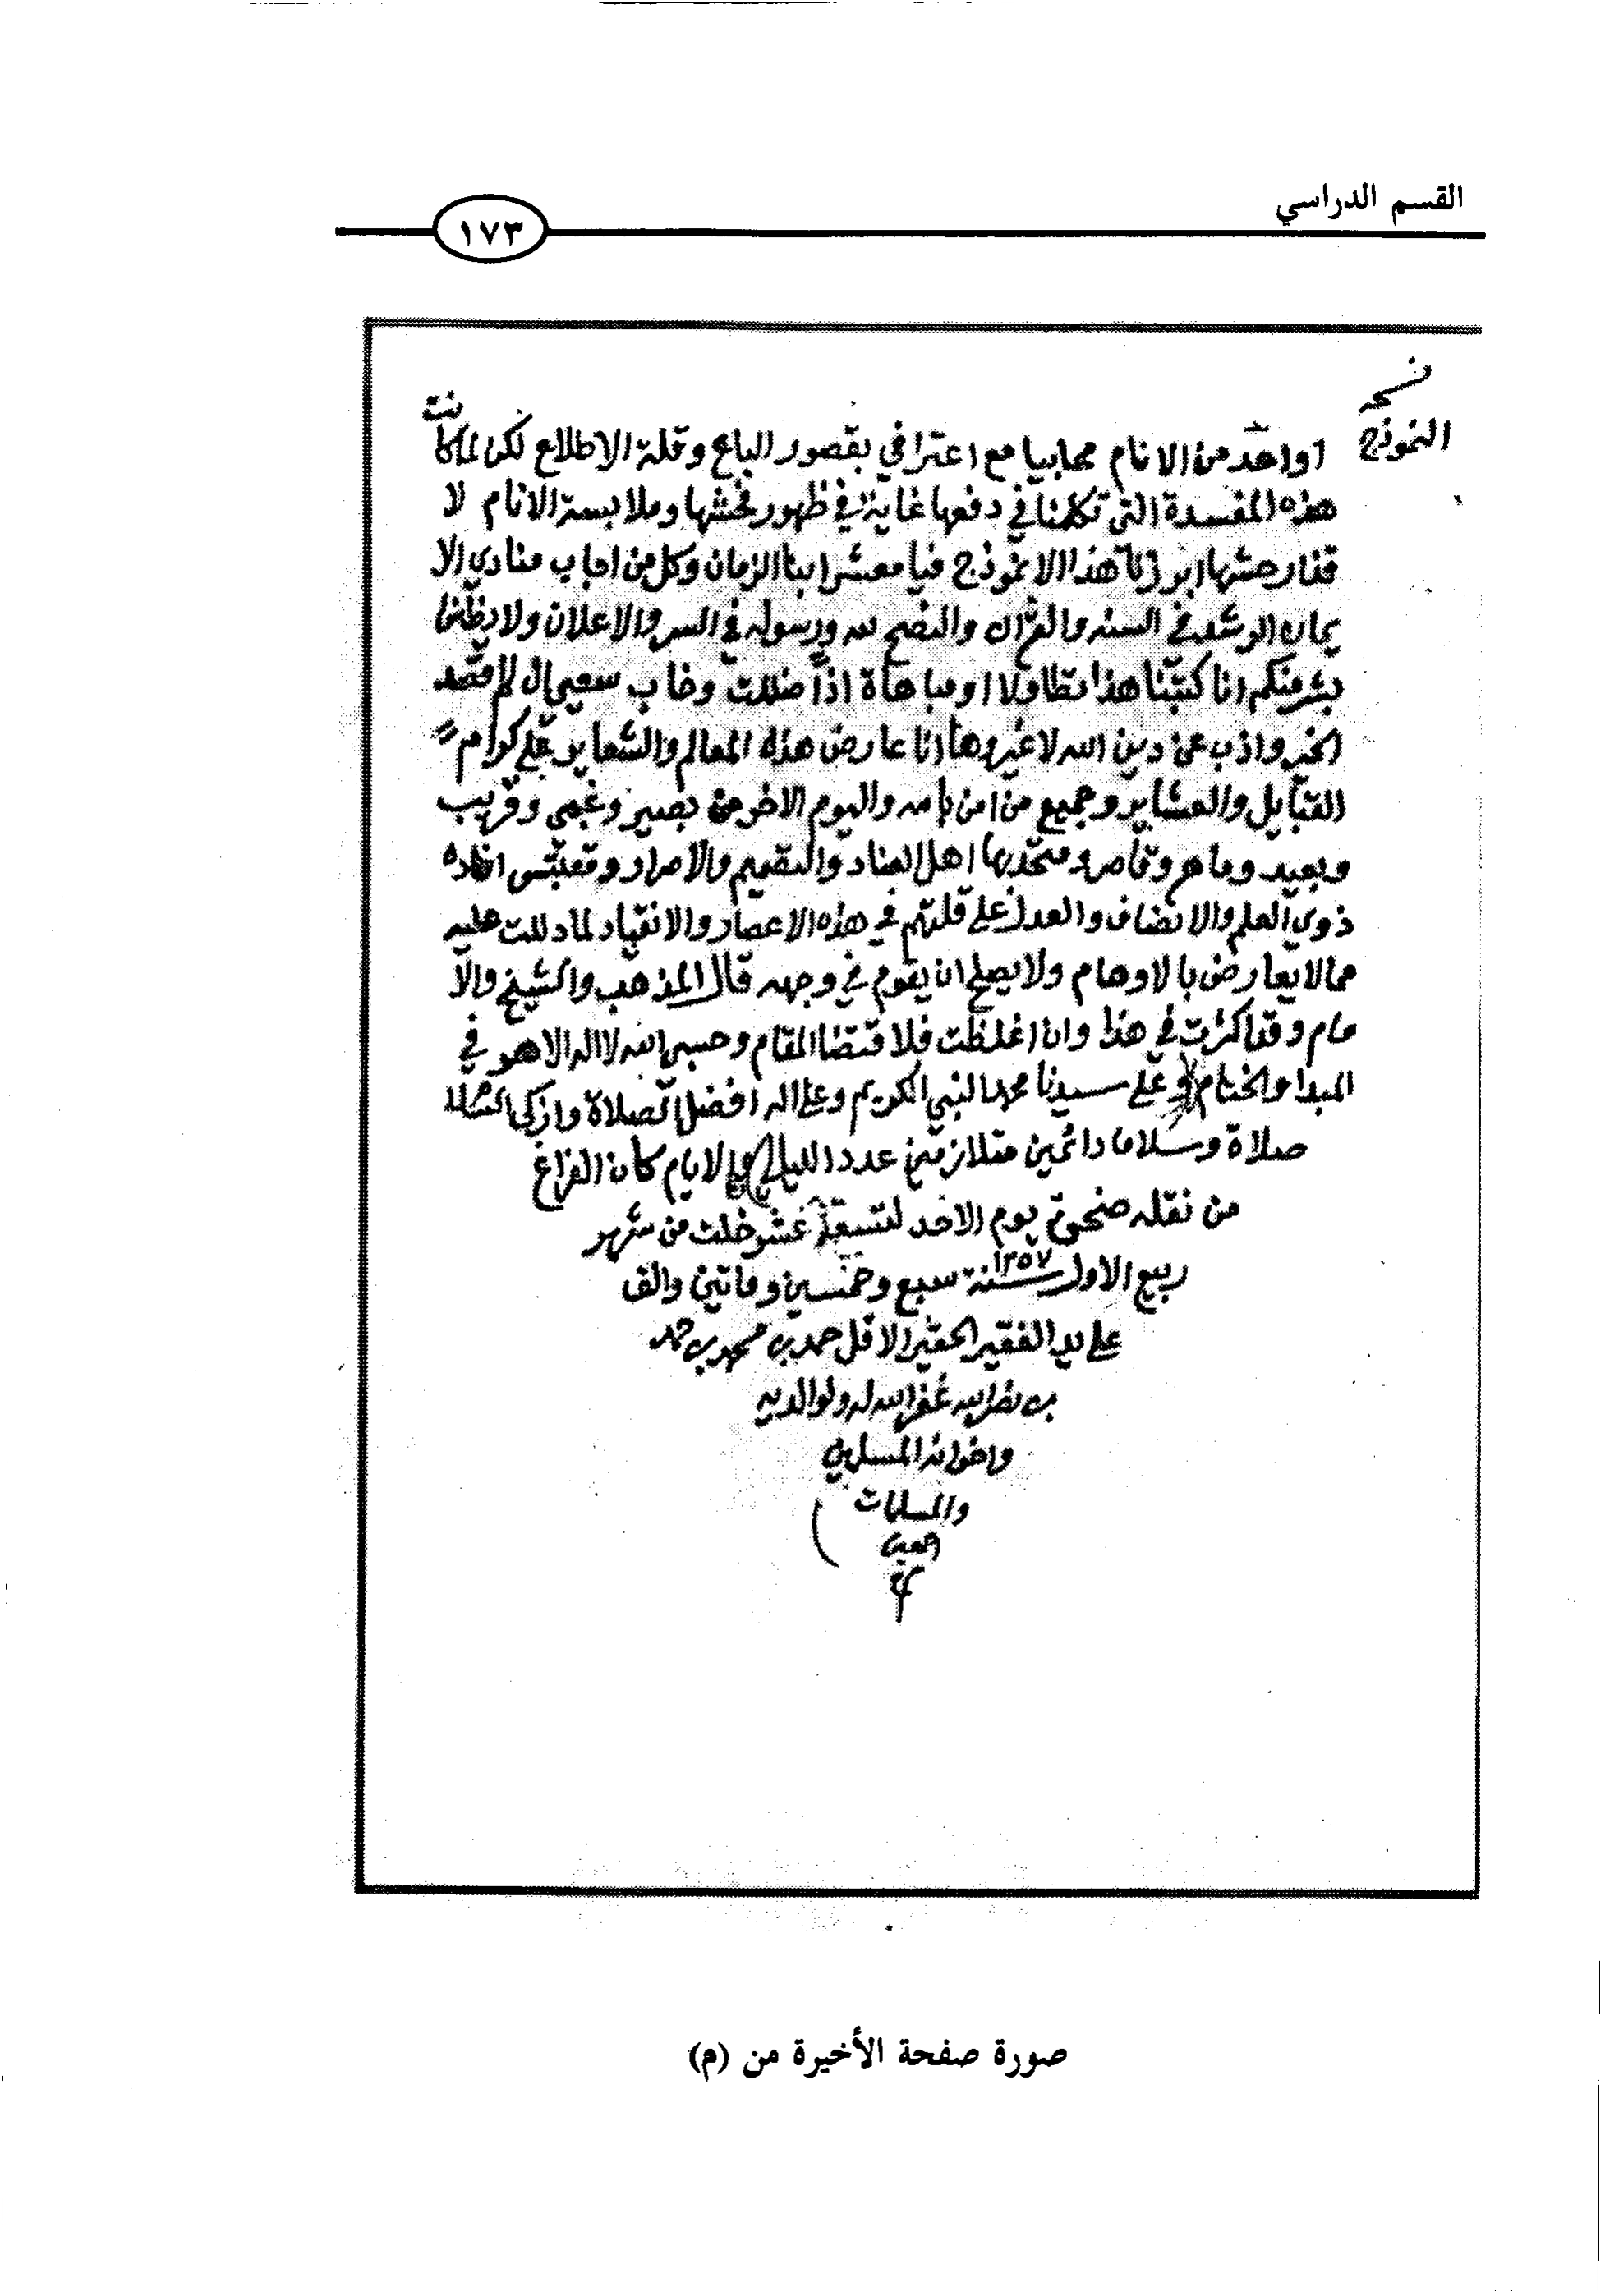 القسم الدراسي
١٧٣
نسخه
النموذج
او احد من الانام محابيا مع اعترافي بقصور الباع وقلة الاطلاع لكن لما كانت
هذه المفسدة التي تكلمنا في دفعها غاية في ظهور فحشها وملابسة الانام لا
قذار حشها ابرزنا هذا الانموذج فيا معشر ابنا الزمان وكل من اجاب منادي الا
يمان الرشد في السنه والقران والنصح لله ورسوله في السر والاعلان ولا يظننا
بشر منكم انا كتبنا هذا تطاولا او مباهاة اذا ضللت وخاب سعيي ال لا قصد
الخير واذب عن دين الله لا غير وها انا عارض هذه المعالم والشعاير على كرام
القبايل والعشاير وجميع من امن بالله واليوم الاخر من بصير وغبي وقريب
وبعيد وماهر وقاصر ومتحد بها اهل العناد والتقميم والاصرار و افاده
ذوي العلم والانصاف والعدل على قلتهم في هذه الاعصار والانقياد لما دللت عليه
مما لا يعارض بالاوهام ولا يصلح ان يقوم في وجهه قال المذهب والشيخ والا
مام وقد اكثرت في هذا وان اغلظت فلاقتضا المقام وحسبي الله لا اله الا هو في
المبدا والختام وعلى سيدنا محمد النبي الكريم وعلى اله افضل الصلاة وازكى السلام
صلاة وسلاما دائمين متلازمين عدد الليالي والايام كان الفراغ
من نقله ضحوة يوم الاحد لتسعة عشر خلت من شهر
ربيع الاول سنة ١٢٥٧ سبع وخمسين وماتين والف
على يد الفقير الحقير الاقل حمد بن محمد بن حمد
بن نصر الله غفر الله له ولوالديه
واخوانه المسلمين
والمسلمات
امين
صورة صفحة الأخيرة من (م)